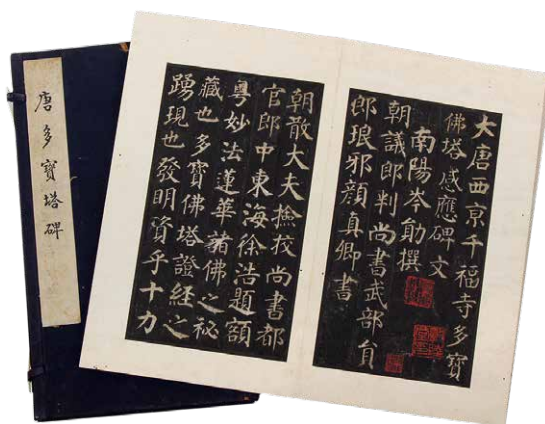 唐多寶塔碑
大唐西京千福寺多寶
佛塔感應碑文
南陽岑勛撰
朝議郎判尚書武部員
郎琅邪顏真卿書
朝散大夫撿挍尚書都
官郎中東海徐浩題額
粵妙法蓮華諸佛之秘
藏也多寶佛塔證經之
踴現也發明資乎十力